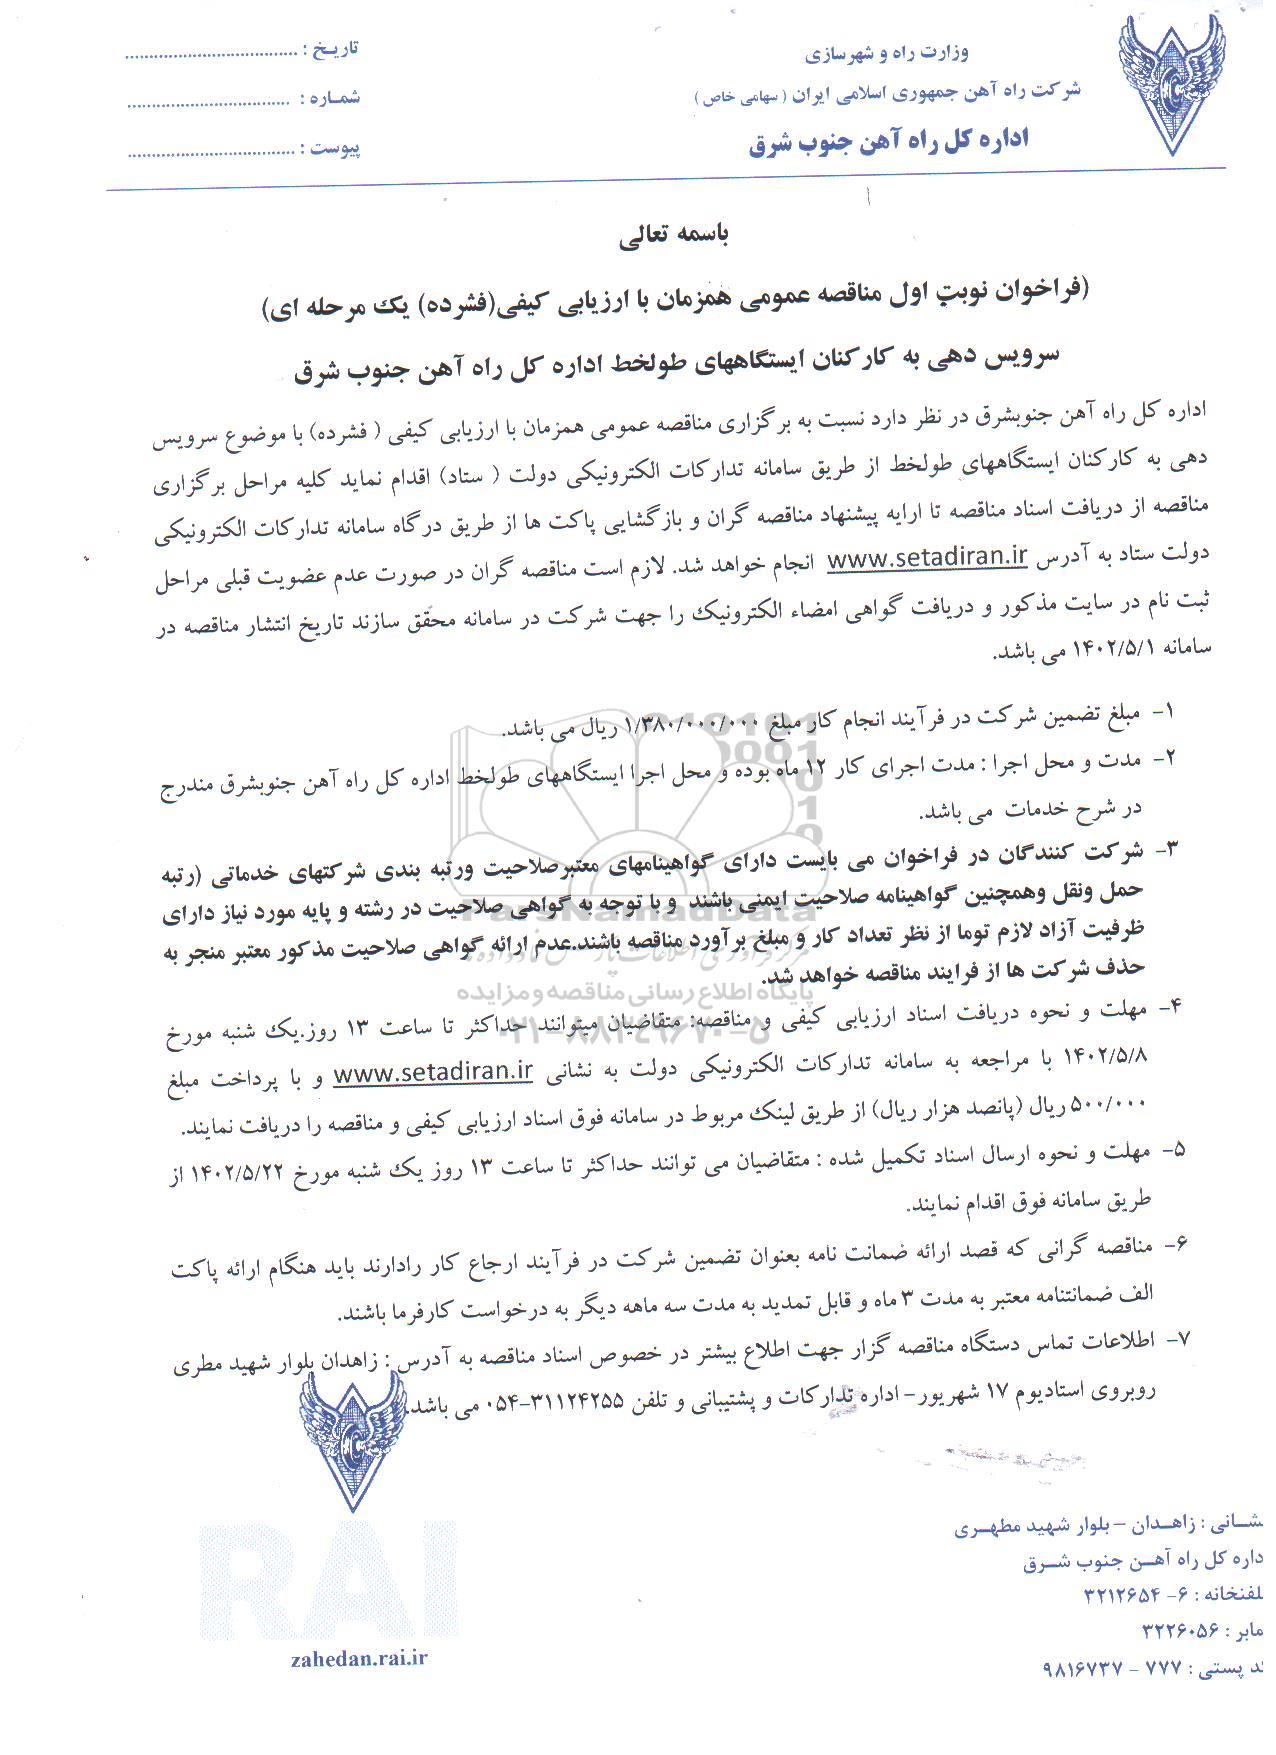 وزارت راه و شهرسازی
شرکت راه آهن جمهوری اسلامی ایران ( سهامی خاص )
اداره کل راه آهن جنوب شرق
تاریخ : ....................................
شماره : ..................................
پیوست : ..................................
باسمه تعالی
(فراخوان نوبت اول مناقصه عمومی همزمان با ارزیابی کیفی(فشرده) یک مرحله ای)
سرویس دهی به کارکنان ایستگاههای طولخط اداره کل راه آهن جنوب شرق
اداره کل راه آهن جنوبشرق در نظر دارد نسبت به برگزاری مناقصه عمومی همزمان با ارزیابی کیفی ( فشرده) با موضوع سرویس
دهی به کارکنان ایستگاههای طولخط از طریق سامانه تدارکات الکترونیکی دولت ( ستاد) اقدام نماید کلیه مراحل برگزاری
مناقصه از دریافت اسناد مناقصه تا ارایه پیشنهاد مناقصه گران و بازگشایی پاکت ها از طریق درگاه سامانه تدارکات الکترونیکی
دولت ستاد به آدرس www.setadiran.ir انجام خواهد شد. لازم است مناقصه گران در صورت عدم عضویت قبلی مراحل
ثبت نام در سایت مذکور و دریافت گواهی امضاء الکترونیک را جهت شرکت در سامانه محقق سازند تاریخ انتشار مناقصه در
سامانه ۱۴۰۲/۵/۱ می باشد.
۱- مبلغ تضمین شرکت در فرآیند انجام کار مبلغ ۱/۳۸۰/۰۰۰/۰۰۰ ریال می باشد.
۲- مدت و محل اجرا : مدت اجرای کار ۱۲ ماه بوده و محل اجرا ایستگاههای طولخط اداره کل راه آهن جنوبشرق مندرج
در شرح خدمات می باشد.
۳- شرکت کنندگان در فراخوان می بایست دارای گواهینامهای معتبرصلاحیت ورتبه بندی شرکتهای خدماتی (رتبه
حمل ونقل وهمچنین گواهینامه صلاحیت ایمنی باشند و با توجه به گواهی صلاحیت در رشته و پایه مورد نیاز دارای
ظرفیت آزاد لازم توما از نظر تعداد کار و مبلغ برآورد مناقصه باشند.عدم ارائه گواهی صلاحیت مذکور معتبر منجر به
حذف شرکت ها از فرایند مناقصه خواهد شد.
۴- مهلت و نحوه دریافت اسناد ارزیابی کیفی و مناقصه: متقاضیان میتوانند حداکثر تا ساعت ۱۳ روز.یک شنبه مورخ
۱۴۰۲/۵/۸ با مراجعه به سامانه تدارکات الکترونیکی دولت به نشانی www.setadiran.ir و با پرداخت مبلغ
۵۰۰/۰۰۰ ریال (پانصد هزار ریال) از طریق لینک مربوط در سامانه فوق اسناد ارزیابی کیفی و مناقصه را دریافت نمایند.
۵- مهلت و نحوه ارسال اسناد تکمیل شده : متقاضیان می توانند حداکثر تا ساعت ۱۳ روز یک شنبه مورخ ۱۴۰۲/۵/۲۲ از
طریق سامانه فوق اقدام نمایند.
۶- مناقصه گرانی که قصد ارائه ضمانت نامه بعنوان تضمین شرکت در فرآیند ارجاع کار رادارند باید هنگام ارائه پاکت
الف ضمانتنامه معتبر به مدت ۳ ماه و قابل تمدید به مدت سه ماهه دیگر به درخواست کارفرما باشند.
۷- اطلاعات تماس دستگاه مناقصه گزار جهت اطلاع بیشتر در خصوص اسناد مناقصه به آدرس : زاهدان بلوار شهید مطری
روبروی استادیوم ۱۷ شهریور- اداره تدارکات و پشتیبانی و تلفن ۳۱۱۲۴۲۵۵-۰۵۴ می باشد.
ParsNamadData
پایگاه اطلاع رسانی مناقصه و مزایده
۰۲۱-۸۸۳۴۹۶۷۰-۵
RAI
zahedan.rai.ir
شانی : زاهدان - بلوار شهید مطهری
داره کل راه آهن جنوب شرق
لفنخانه : ۶- ۳۲۱۲۶۵۴
مابر : ۳۲۲۶۰۵۶
د پستی : ۷۷۷ - ۹۸۱۶۷۳۷